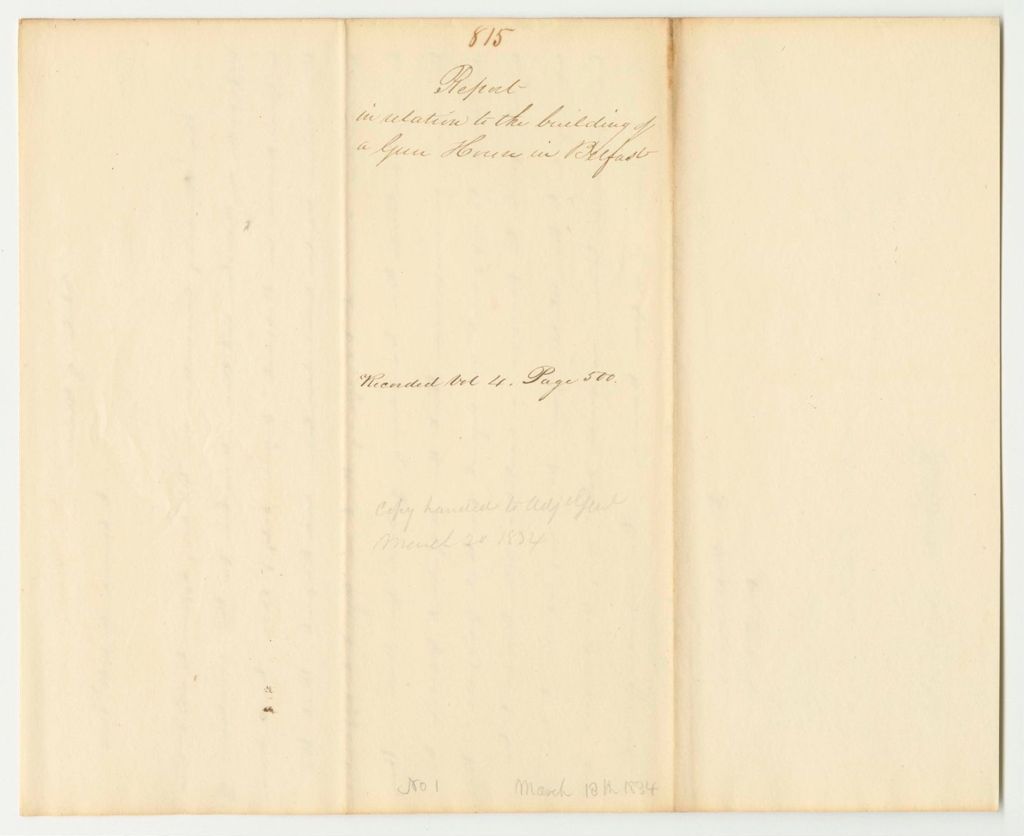 815
Report
in relation to the building of
a Gun House in Belfast
Recorded Vol 4. Page 500.
Copy handed to Adj Genl
March 28 1834
No 1
March 18th 1834